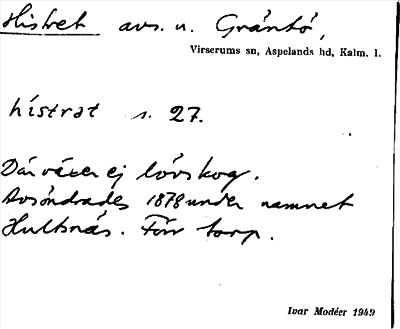 Histret avs. u. Gröntö,
Virserums sn, Aspelands hd, Kalm. l.
hístrat s. 27.
Där växer ej lövskog.
Avsöndrades 1878 under namnet
Hultsnäs. Förr torp.
Ivar Modéer 1949